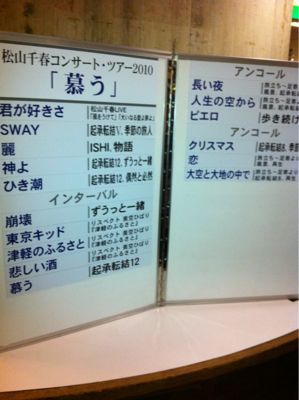 松山千春コンサート・ツアー2010
「慕う」
君が好きさ 松山千春LIVE
SWAY 起承転結V、季節の旅人
麗 ISHI、物語
神よ 起承転結12、ずうっと一緒
ひき潮 起承転結12、偶然と必然
インターバル
崩壊 ずうっと一緒
東京キッド リスペクト 美空ひばり『津軽のふるさと』
津軽のふるさと リスペクト 美空ひばり『津軽のふるさと』
悲しい酒 リスペクト 美空ひばり『津軽のふるさと』
慕う 起承転結12
アンコール
長い夜
人生の空から
ピエロ 歩き続け
アンコール
クリスマス 起承転結8、再生
恋
大空と大地の中で